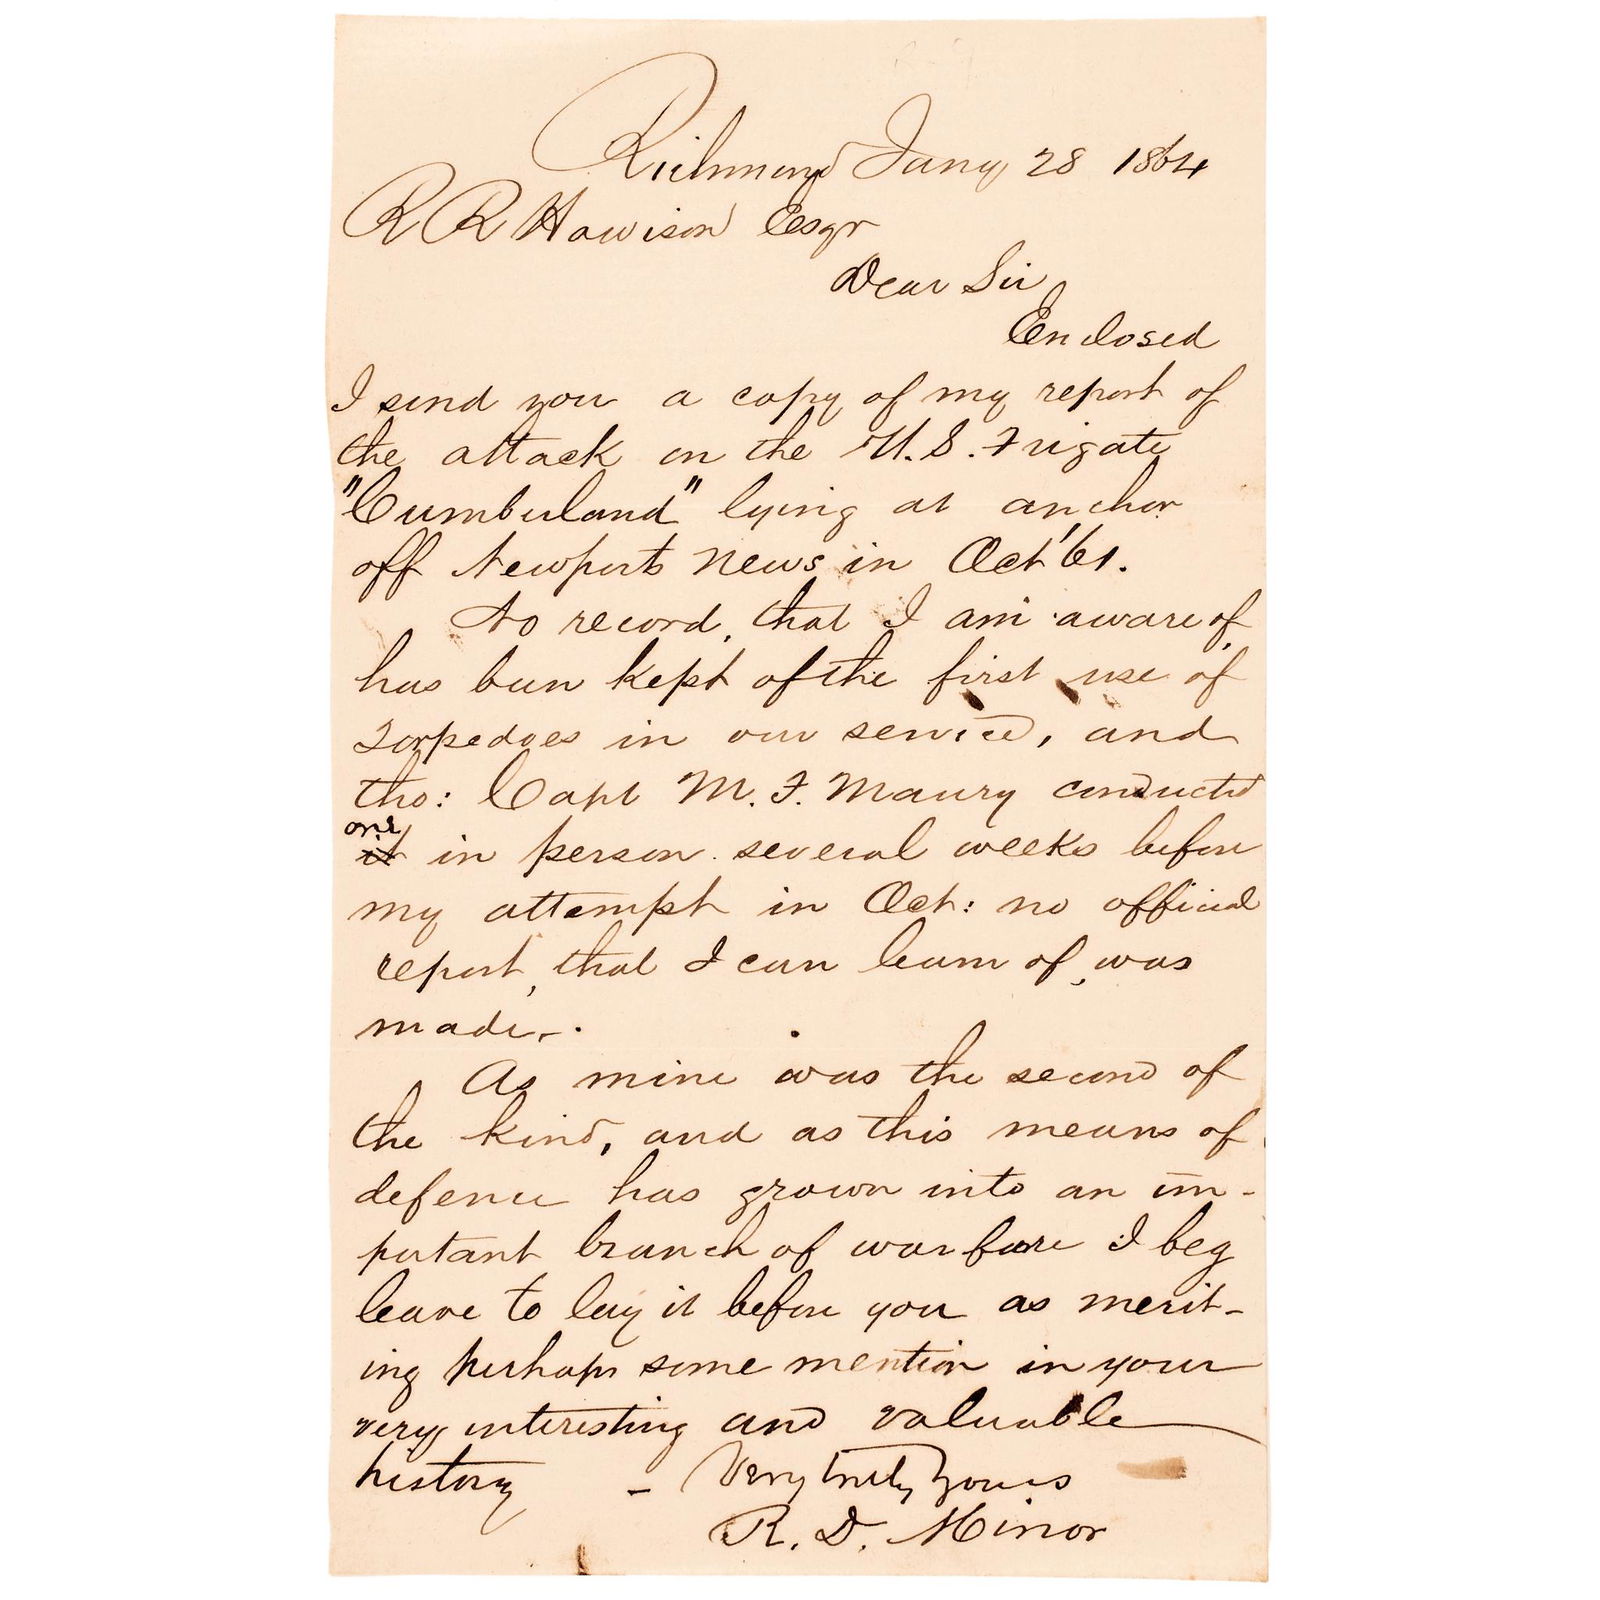 Richmond Jany 28 1864
R R Howison Esqr
Dear Sir,
Enclosed
I send you a copy of my report of
the attack on the U.S. Frigate
"Cumberland" lying at anchor
off Newports News in Oct '61.
No record, that I am aware of,
has been kept of the first use of
Torpedoes in our service, and
tho: Capt M. F. Maury conducted
one
it in person several weeks before
my attempt in Oct: no official
report, that I can learn of, was
made.
As mine was the second of
the kind, and as this means of
defence has grown into an im-
portant branch of warfare I beg
leave to lay it before you as merit-
ing perhaps some mention in your
very interesting and valuable
history – Very truly Yours
R. D. Minor